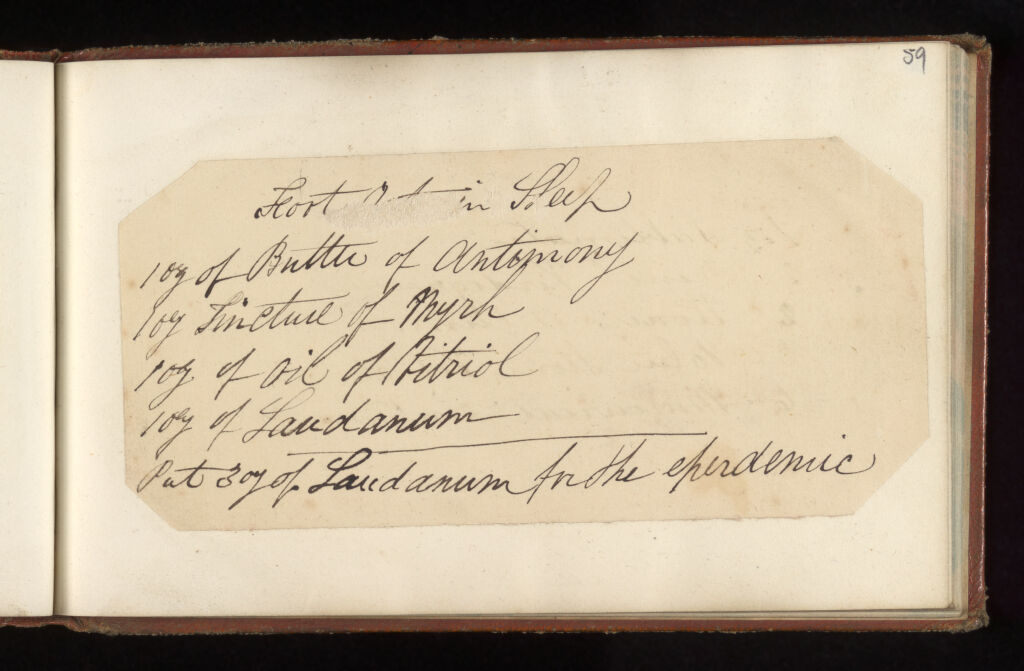 59
Foot in Sleep
1 oz of Butter of Antimony
1 oz Tincture of Myrh
1 oz of Oil of Vitriol
1 oz of Laudanum
Put 3 oz of Laudanum for the eperdemic